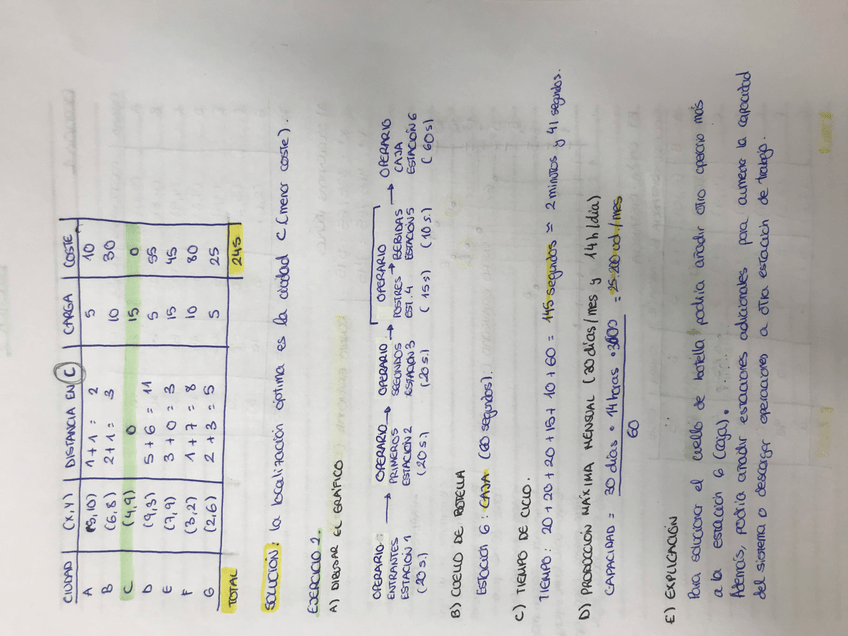 CIUDAD (X,Y) DISTANCIA EN C CARGA COSTE
A (5,10) 1+1 = 2 5 10
B (6,8) 2+1 = 3 10 30
C (4,9) 0 15 0
D (9,3) 5+6 = 11 5 55
E (7,9) 3+0 = 3 15 45
F (3,2) 1+7 = 8 10 80
G (2,6) 2+3 = 5 5 25
TOTAL 245
SOLUCIÓN: la localización óptima es la ciudad C (menor coste).
EJERCICIO 2.
A) DIBUJAR EL GRÁFICO
OPERARIO → OPERARIO → OPERARIO → OPERARIO → OPERARIO
ENTRANTES PRIMEROS SEGUNDOS POSTRES → BEBIDAS CAJA
ESTACIÓN 1 ESTACIÓN 2 ESTACIÓN 3 EST. 4 ESTACIÓN 5 ESTACIÓN 6
(20 s.) (20 s.) (20 s.) (15 s) (10 s.) (60 s)
B) CUELLO DE BOTELLA
ESTACIÓN 6: CAJA (60 segundos).
C) TIEMPO DE CICLO.
TIEMPO: 20 + 20 + 20 + 15 + 10 + 60 = 145 segundos ≃ 2 minutos y 41 segundos.
D) PRODUCCIÓN MÁXIMA MENSUAL (30 días/mes y 14 h/día)
CAPACIDAD = 30 días · 14 horas · 3600 = 25.200 ud/mes
60
E) EXPLICACIÓN
Para solucionar el cuello de botella podría añadir otro operario más
a la estación 6 (caja).
Además, podría añadir estaciones adicionales para aumentar la capacidad
del sistema o descargar operaciones a otra estación de trabajo.